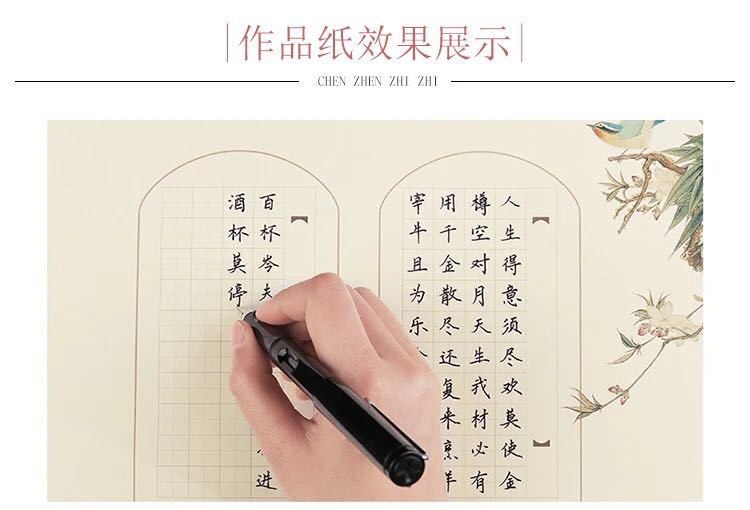 作品纸效果展示
CHEN ZHEN ZHI ZHI
人生得意须尽欢莫使金
樽空对月天生我材必有
用千金散尽还复来烹羊
宰牛且为乐
百杯岑夫进
酒杯莫停